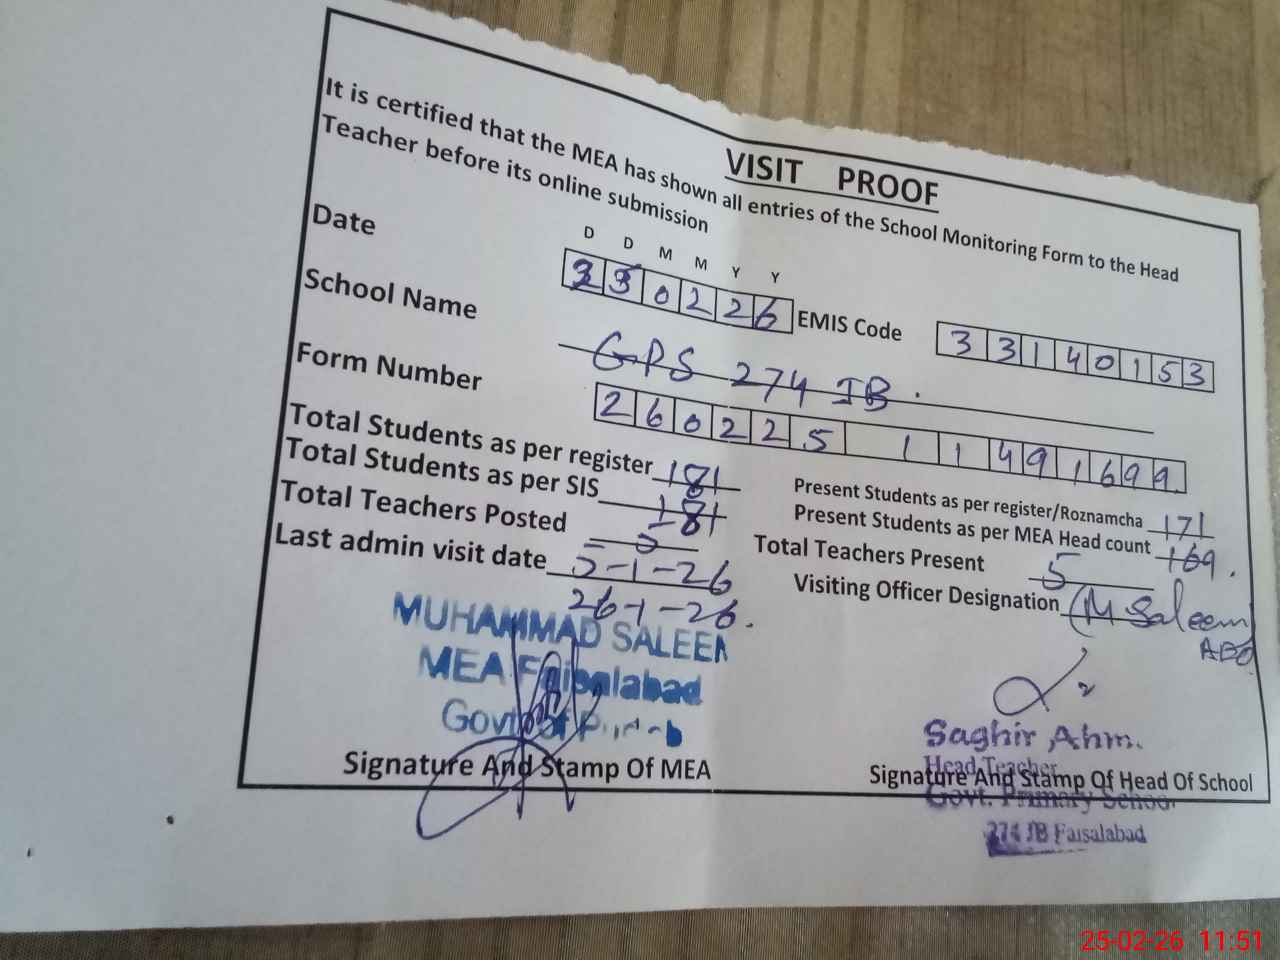 VISIT PROOF
It is certified that the MEA has shown all entries of the School Monitoring Form to the Head
Teacher before its online submission
D D M M Y Y
Date 0226 EMIS Code 33140153
School Name GPS 274 JB.
Form Number 260225 11491699
Total Students as per register 181 Present Students as per register/Roznamcha 171
Total Students as per SIS 181 Present Students as per MEA Head count 169.
Total Teachers Posted 5 Total Teachers Present 5
Last admin visit date 5-1-26 Visiting Officer Designation (M Saleem
26-1-26. AEO
MUHAMMAD SALEEM
MEA Faisalabad
Govt of Punjab
Saghir Ahm.
Head Teacher
Signature And Stamp Of MEA Signature And Stamp Of Head Of School
Govt. Primary School
274 JB Faisalabad
25-02-26 11:51